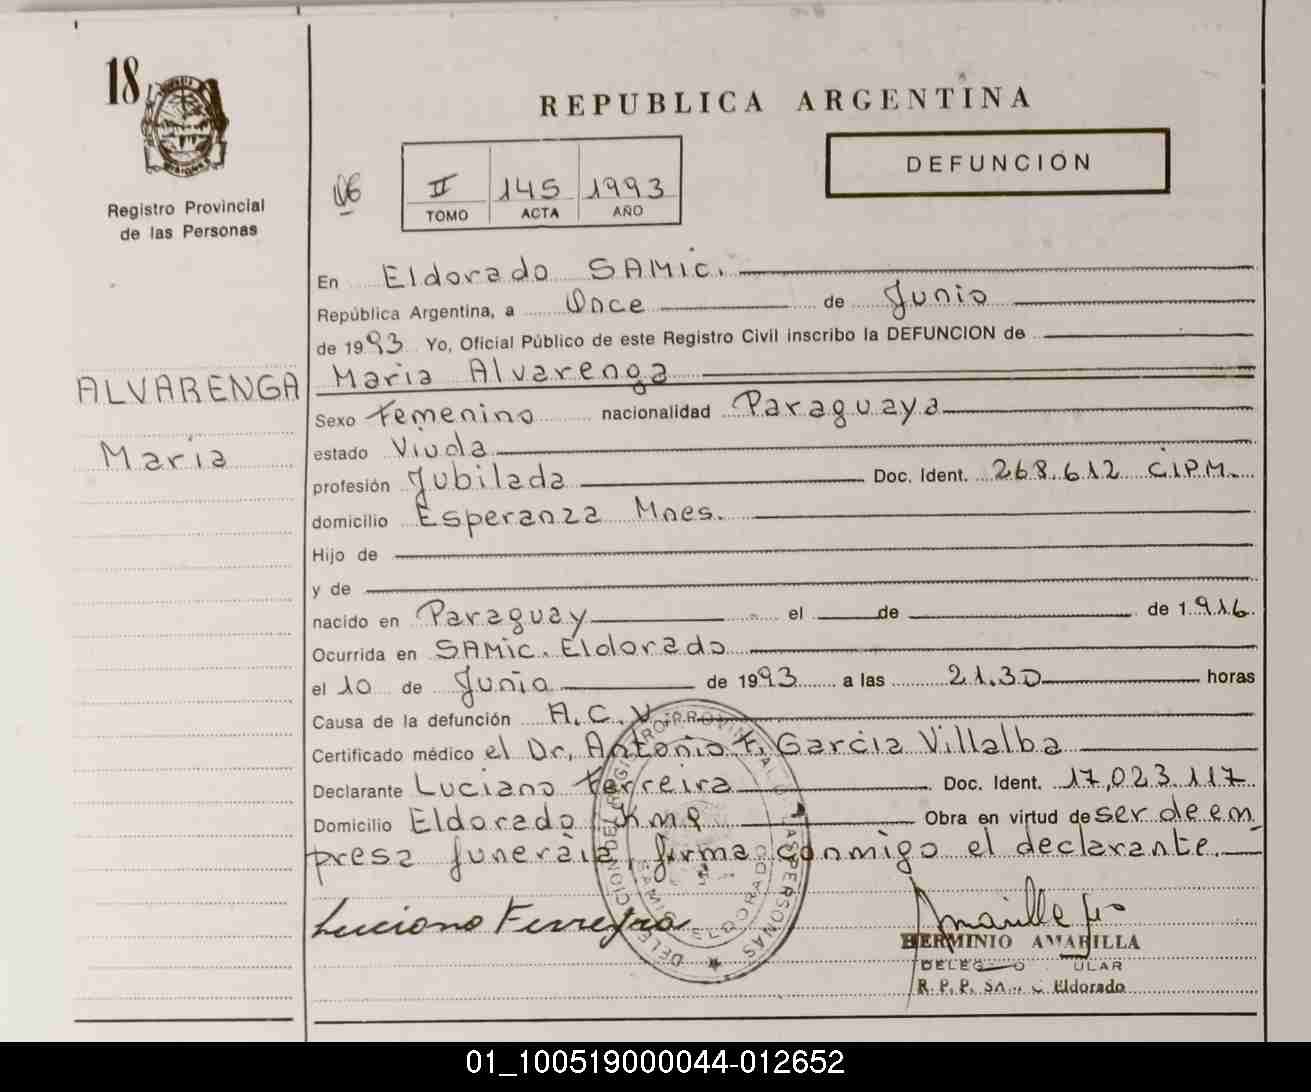 18
REPUBLICA ARGENTINA
DEFUNCION
II 145 1993
TOMO ACTA AÑO
Registro Provincial
de las Personas
En Eldorado SAMic.
República Argentina, a Once de Junio
de 1993 Yo, Oficial Público de este Registro Civil inscribo la DEFUNCION de
ALVARENGA
Maria Alvarenga
Maria
Sexo Femenino nacionalidad Paraguaya
estado Viuda
profesión Jubilada Doc. Ident. 268.612 C.I.P.M.
domicilio Esperanza Mnes.
Hijo de
y de
nacido en Paraguay el de de 1.916.
Ocurrida en SAMic. Eldorado
el 10 de Junio de 1993 a las 21.30 horas
Causa de la defunción A.C.V.
Certificado médico el Dr, Antonio F. Garcia Villalba
Declarante Luciano Ferreira Doc. Ident. 17,023.117
Domicilio Eldorado Km 9 Obra en virtud de ser de em
presa funeraia, firma conmigo el declarante.
Luciano Ferreyra
HERMINIO AMARILLA
R. P. P. Eldorado
DELEGACION DEL REGISTRO PROVINCIAL DE LAS PERSONAS
SAMIC ELDORADO
01_100519000044-012652